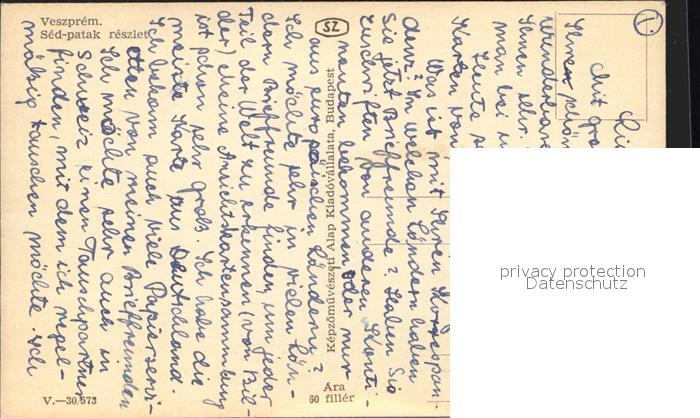 Veszprém.
Séd-patak részlet
SZ
1.
Képzőművészeti Alap Kiadóvállalata, Budapest
V.—30,573
Ára
60 fillér
privacy protection
Datenschutz
Mit
Ihnen schön
wunderbare
Ihnen sehr.
man bei
Heute
Karten von
Was ist mit Ihren
denz? In welchen Ländern haben
Sie jetzt Brieffreunde? Haben Sie
Zuschriften von anderen Konti-
nenten bekommen oder nur
aus europäischen Ländern?
Ich möchte sehr in vielen Län-
dern Brieffreunde finden, um jeden
Teil der Welt zu erkennen (von Bil-
der) meine Ansichtskartensammlung
ist schon sehr groß. Ich habe die
meiste Karte aus Deutschland.
Ich bekomm auch viele Papierservi-
etten von meinen Brieffreunden
Ich möchte sehr auch in
Schweiz einen Tauschpartner
finden, mit dem ich regel-
mäßig tauschen möchte. Ich